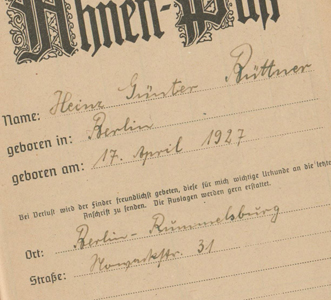 Ahnen-Paß
Name: Heinz Günter Büttner
geboren in: Berlin
geboren am: 17. April 1927
Bei Verlust wird der Finder freundlichst gebeten, diese für mich wichtige Urkunde an die letzte
Anschrift zu senden. Die Auslagen werden gern erstattet.
Ort: Berlin-Rummelsburg
Straße: 31